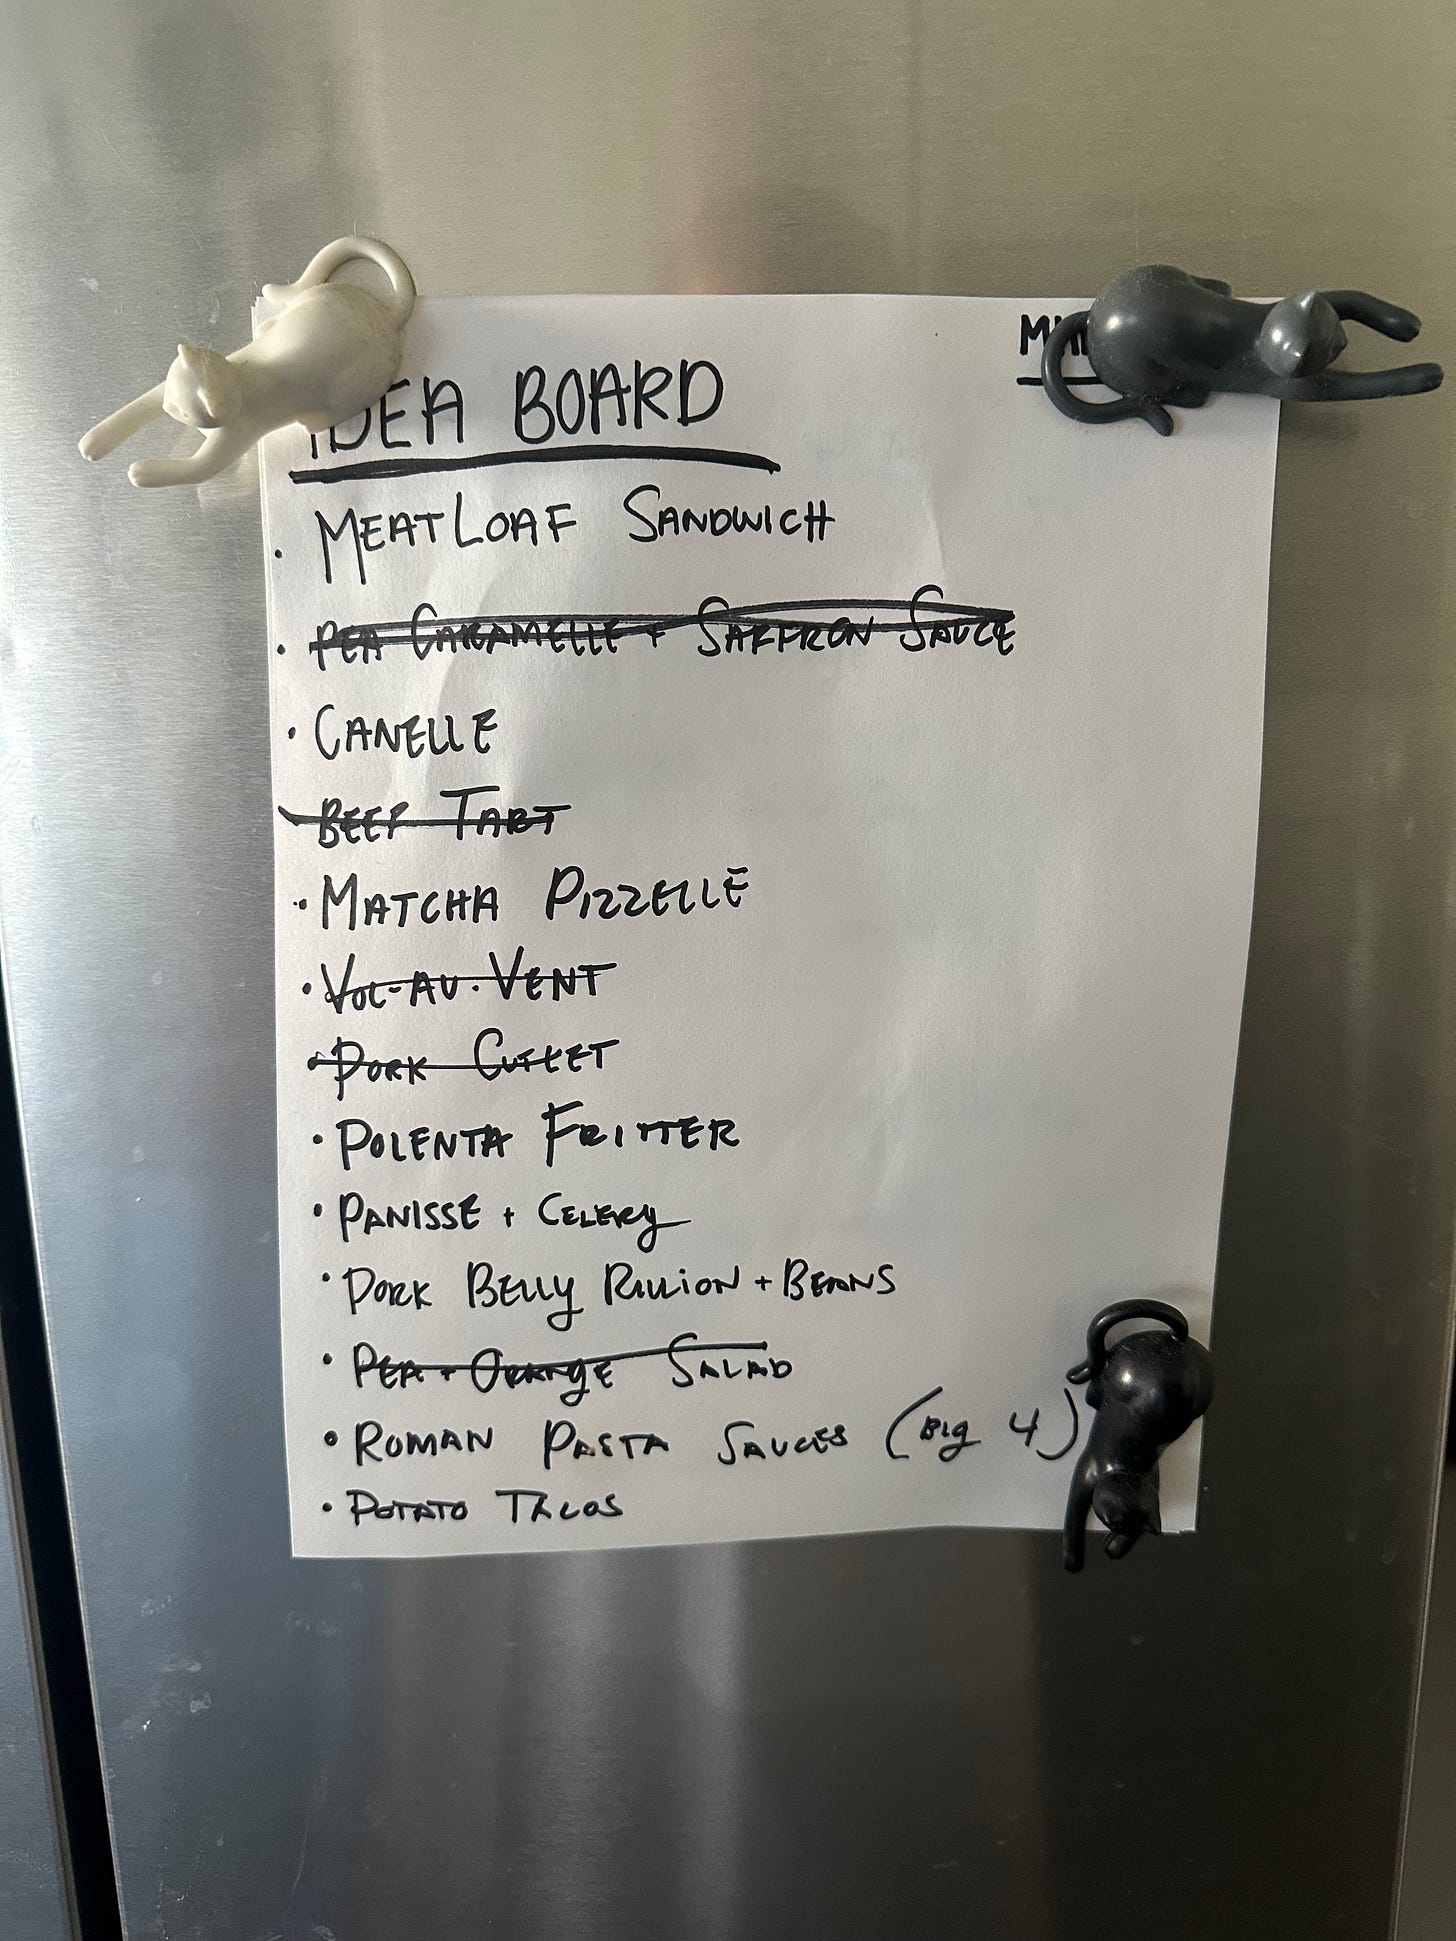 IDEA BOARD
· MEATLOAF SANDWICH
· PEA CARAMELLE + SAFFRON SAUCE
· CANELLE
BEEF TART
· MATCHA PIZZELLE
· VOL-AU-VENT
· PORK CUTLET
· POLENTA FRITTER
· PANISSE + CELERY
· PORK BELLY RILLION + BEANS
· PEA + ORANGE SALAD
· ROMAN PASTA SAUCES (BIG 4)
· POTATO TACOS